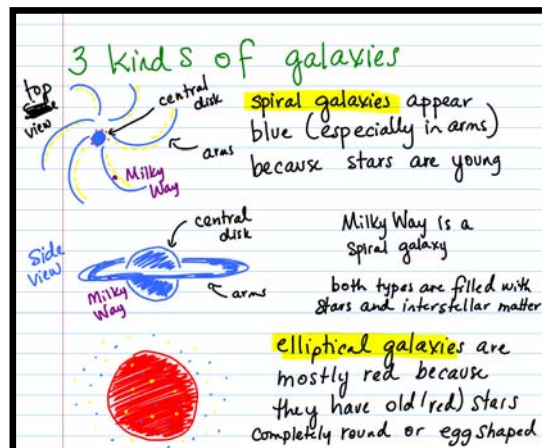 3 kinds of galaxies
top
side
view
central
disk
arms
Milky
Way
spiral galaxies appear
blue (especially in arms)
because stars are young
Side
view
central
disk
arms
Milky
Way
Milky Way is a
spiral galaxy
both types are filled with
stars and interstellar matter
elliptical galaxies are
mostly red because
they have old (red) stars
completely round or egg shaped